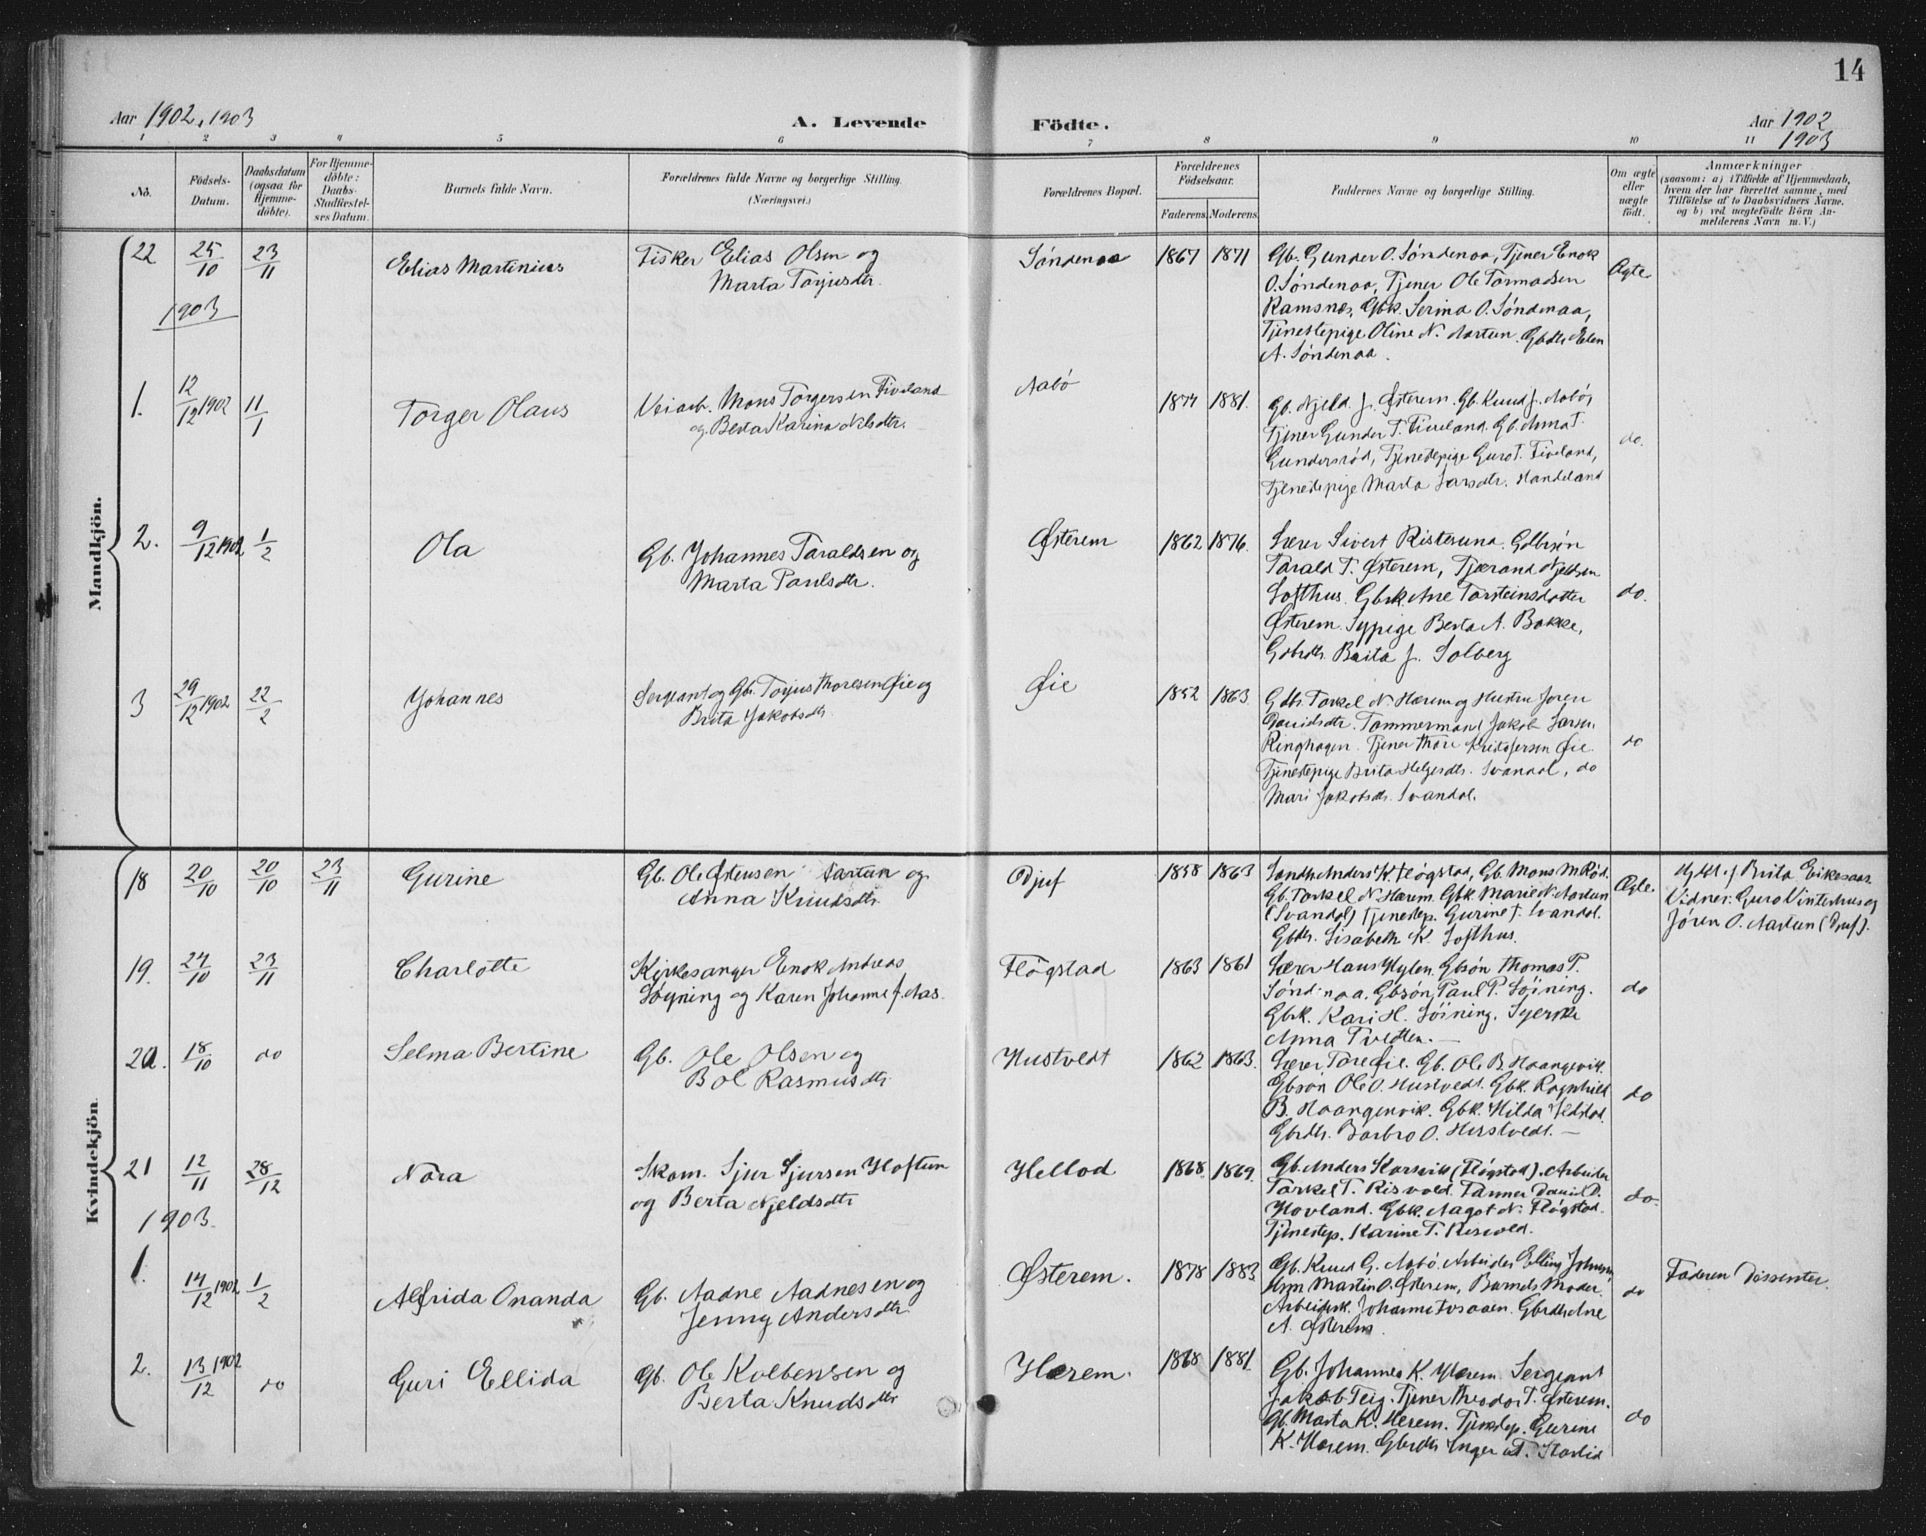 14
Aar 1902, 1903
A. Levende Födte.
Aar 1902
1903
1 2 3 4 5 6 7 8 9 10 11
No.
Födsels-
Datum.
Daabsdatum
(ogsaa for
Hjemme-
döbte).
For Hjemme-
döbte:
Daabs-
Stadfæstel-
ses Datum.
Barnets fulde Navn.
Forældrenes fulde Navne og borgerlige Stilling.
(Næringsvei.)
Forældrenes Bopæl.
Forældrenes
Födselsaar.
Faderens. Moderens.
Faddernes Navne og borgerlige Stilling.
Om ægte
eller
uægte
födt.
Anmærkninger
(saasom: a) i Tilfælde af Hjemmedaab,
hvem der har forrettet samme, med
Tilföielse af to Daabsvidners Navne.
og b) ved uægtefödte Börn An-
melderens Navn m. V.)
Mandkjön.
22 25/10 23/11 Elias Martinius
Fisker Elias Olsen og
Marta Torjusdtr.
Søndenaa 1867 1871
Gb. Gunder O. Søndenaa, Tjener Enok
O. Søndenaa, Tjener Ole Tormodsen
Ramsnes, Gbk. Serina O. Søndenaa,
Tjenestepige Oline N. Aartun. Gbdtr. Elen
A. Søndenaa.
Ægte
1903
1. 12/12 1902 11/1 Torger Olaus
Veiarb. Mons Torgersen Fiveland
og Berta Karina Nilsdtr.
Aabø 1877 1881.
Gb. Njeld J. Østerem. Gb. Knud J. Aabø,
Tjener Gunder T. Fiveland. Gb. Anna T.
Gundersrød, Tjenestepige Guro T. Fiveland,
Tjenestepige Marta Larsdtr. Handeland
do.
2. 9/12 1902 1/2 Ola
Gb. Johannes Taraldsen og
Marta Paulsdtr.
Østerem 1862 1876.
Lærer Sivert Risteruna. Gdbrsøn
Tarald T. Østerem, Tjærand Njeldsen
Lofthus. Gbrk. Ane Torsteinsdatter
Østerem. Sypige Berta A. Bakke,
Gdbrdtr. Brita J. Solberg
do.
3 29/12 1902 22/2 Johannes
Sergeant og Gb. Torjus Thoresen Øie og
Brita Jakobsdtr.
Øie 1852 1863.
Gdb. Torkel N. Hærem og Hustru Joren
Davidsdtr. Tømmermand Jakob Larsen
Ringhagen. Tjener Thore Kristofersen Øie.
Tjenestepige Brita Helgesdtr. Svandal, do
Mari Jakobsdtr. Svandal.
do
Kvindekjön.
18 20/10 20/10 23/11 Gurine
Gb. Ole Østensen Aartun og
Anna Knudsdtr.
Djuf 1858 1863
Anders K. Fløgstad, Gb. Mons M. Rød.
Gb. Torkel N. Hærem. Gbk. Marie N. Aartun
(Svandal) Tjenestep. Gurine T. Svandal.
Gbdtr. Lisabeth K. Lofthus.
Ægte.
Hjdbt. af Brita Eikesaar.
Vidner: Guro Vinterhus og
Jøren O. Aartun (Djuf).
19. 24/10 23/11 Charlotte
Kirkesanger Enok Andreas
Søyning og Karen Johanne J. Aas.
Fløgstad 1863 1861
Lærer Hans Hylen. Gbsøn Thomas P.
Søndenaa. Gbsøn Paul P. Søining.
Gbrk. Kari H. Søining. Syerske
Anna Tvedten.—
do
20. 18/10 do Selma Bertine
Gb. Ole Olsen og
Bol Rasmusdtr.
Hustvedt 1862 1863.
Lærer Tore Øie. Gb. Ole B. Haangevik.
Gbsøn Ole O. Hustvedt. Gbk. Ragnhild
B. Haangenvik. Gbk. Hilda Jelstad.
Gbrdtr. Barbro O. Hustvedt.—
do
21 12/11 28/12 Nora
Skom. Sjur Sjursen Hoftun
og Berta Njeldsdtr.
Hellod 1868 1869.
Gb. Anders Korsvik (Fløgstad). Arbeider
Torkel T. Risvold. Tømmer David D.
Hovland. Gbk. Aagot N. Fløgstad.
Tjenestep. Karine T. Risvold.
do.
1903.
1. 14/12 1902 1/2 Alfrida Ananda
Gb. Aadne Aadnesen og
Jenny Andersdtr.
Østerem. 1878 1883
Gb. Knud G. Aabø. Arbeider Elling Johnsen,
Martin O. Østerem, Barnets Moder,
Arbeidersk. Johanne Fosaaen. Gbrdtr. Ane
A. Østerem.
do
Faderen Dissenter.
2. 13/12 1902 do Guri Ellida
Gb. Ole Kolbensen og
Berta Knudsdtr.
Hærem. 1868 1881.
Gb. Johannes K. Hærem. Sergeant
Jakob Teig. Tjener Theodor T. Østerem.
Gb. Marta K. Herem. Tjenstep. Gurine
K. Hærem. Gbrdtr. Inger T. Havlid
do